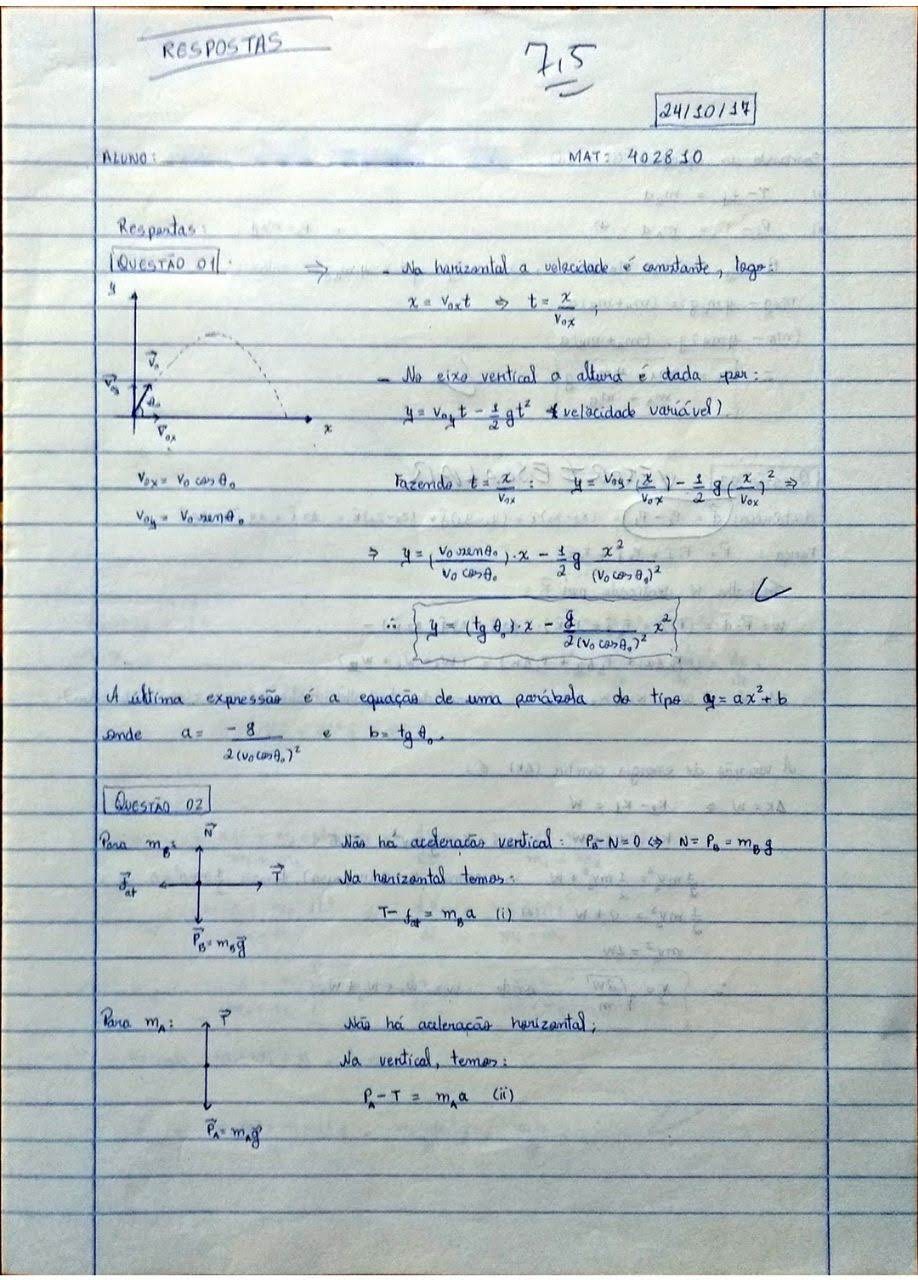 RESPOSTAS
7,5
24/10/17
ALUNO:
MAT: 402810
Respostas:
QUESTÃO 01
⇒ - Na horizontal a velocidade é constante, logo:
x = v₀ₓt ⇒ t = x/v₀ₓ;
y
v⃗₀
v⃗₀y
θ₀
v⃗₀ₓ
x
- No eixo vertical a altura é dada por:
y = v₀y t - 1/2 gt² (velocidade variável)
v₀ₓ = v₀ cos θ₀
v₀y = v₀ sen θ₀
Fazendo t = x/v₀ₓ : y = v₀y(x/v₀ₓ) - 1/2 g(x/v₀ₓ)² ⇒
⇒ y = (v₀ sen θ₀/v₀ cos θ₀)·x - 1/2 g x²/(v₀ cos θ₀)²
∴ y = (tg θ₀)·x - g/2(v₀ cos θ₀)² x²
A última expressão é a equação de uma parábola do tipo y = ax² + b
onde a = -g/2(v₀ cos θ₀)² e b = tg θ₀.
QUESTÃO 02
Para m_B:
N⃗
f⃗at
T⃗
P⃗_B = m_B g⃗
Não há aceleração vertical: P_B - N = 0 ⇔ N = P_B = m_B g
Na horizontal temos:
T - fat = m_B a (i)
Para m_A:
T⃗
P⃗_A = m_A g⃗
Não há aceleração horizontal;
Na vertical, temos:
P_A - T = m_A a (ii)